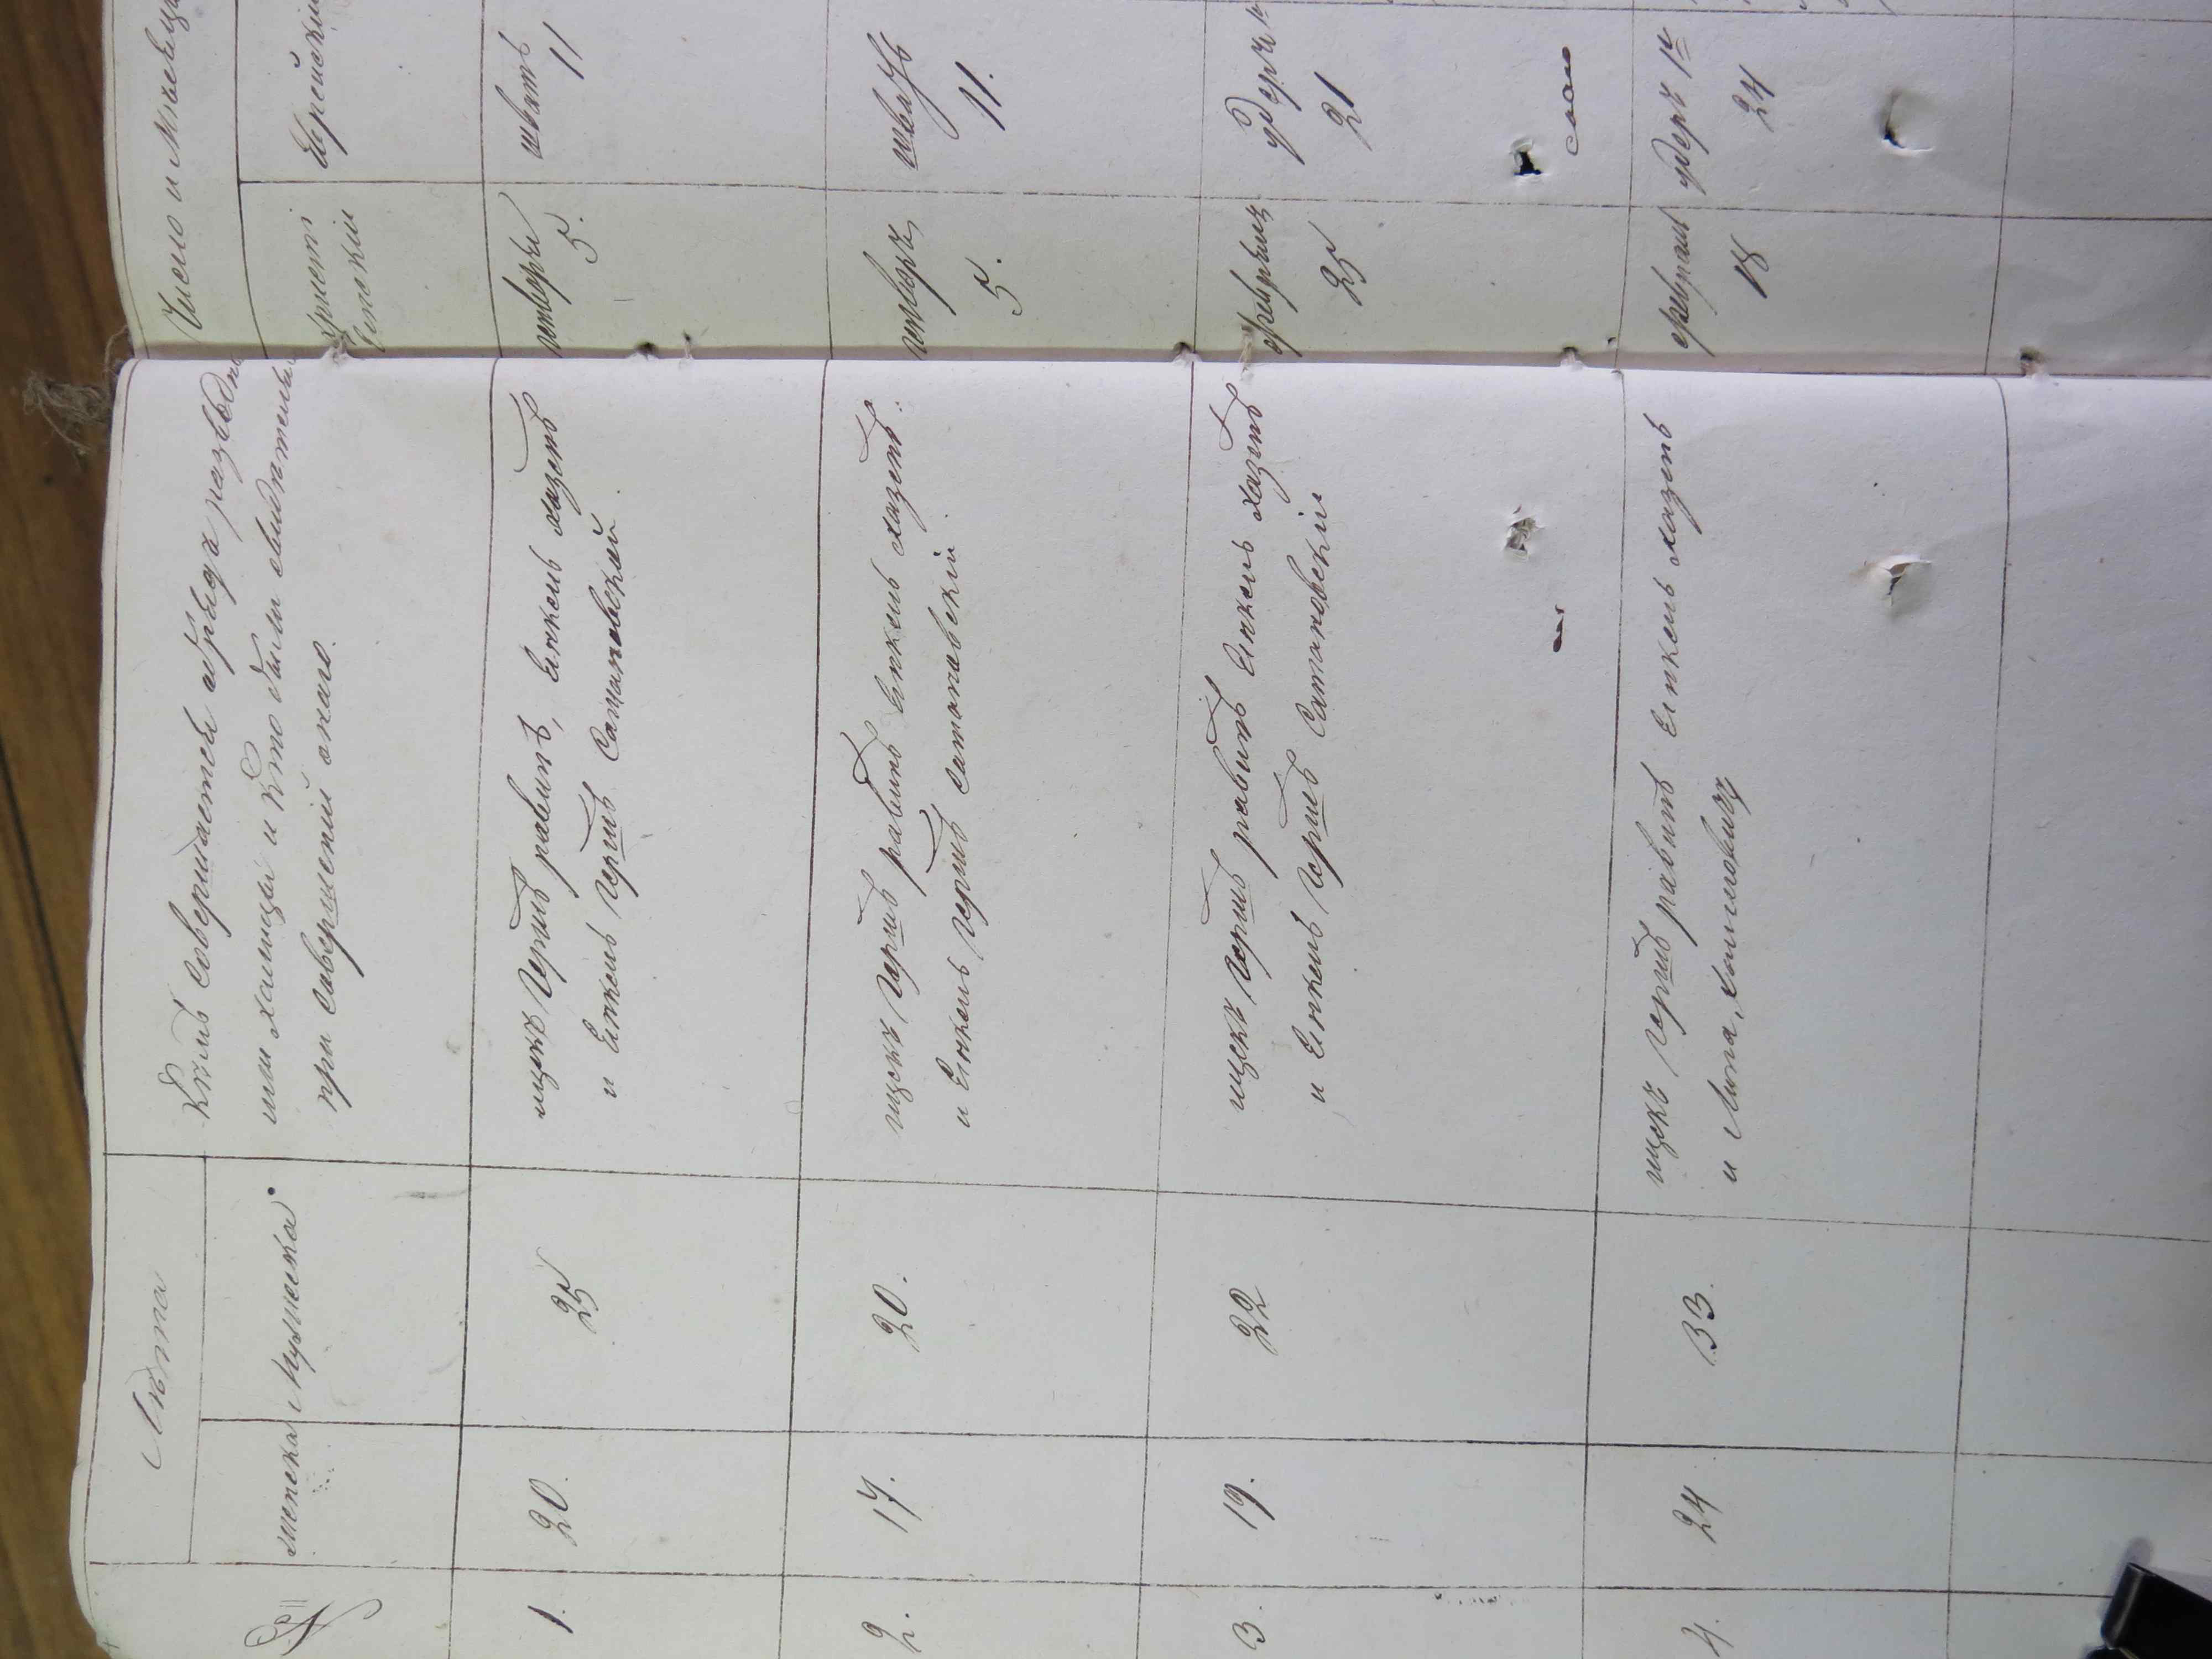 №
Лѣта
женска
Мужеска
Кѣмъ совершается обрядъ развода
или халицы и кто были свидѣтели
при совершеніи онаго.
Число и Мѣсяцъ
Христі
Еврейскій
1.
20.
25
ицекъ Гершъ равинъ, Епкель хазенъ
и Епкель Гершъ Сатановскій.
января
5.
шватъ
11
2.
17.
20.
ицекъ Гершъ равинъ Епкель хазенъ.
и Епкель Гершъ Сатановскій
январъ
5.
шватъ
11.
3.
19.
22
ицекъ Гершъ равинъ Епкель хазенъ
и Епкель Гершъ Сатановскій
25
21
4.
24
33.
ицекъ Гершъ равинъ Епкель хазенъ
и Липа
февраля
18
удеръ 1й
24